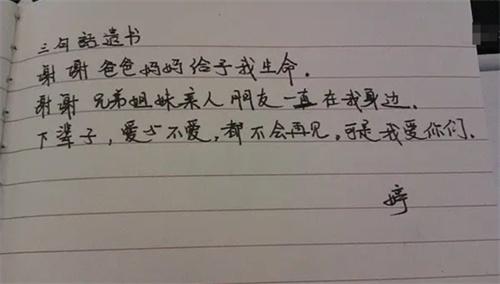 三句话遗书
谢谢爸爸妈妈给予我生命.
谢谢兄弟姐妹亲人朋友一直在我身边.
下辈子,爱与不爱,都不会再见,可是我爱你们.
婷